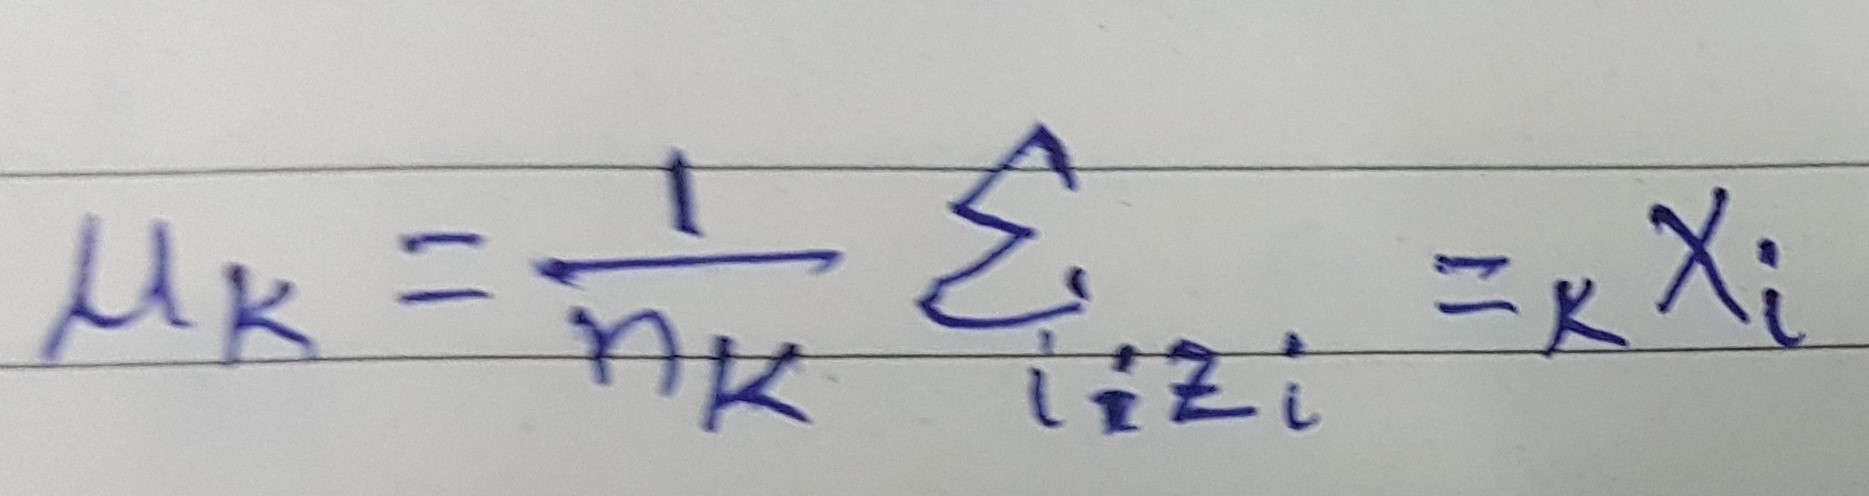 μ_K = \frac{1}{n_K} \sum_{i: z_i =_K} X_i